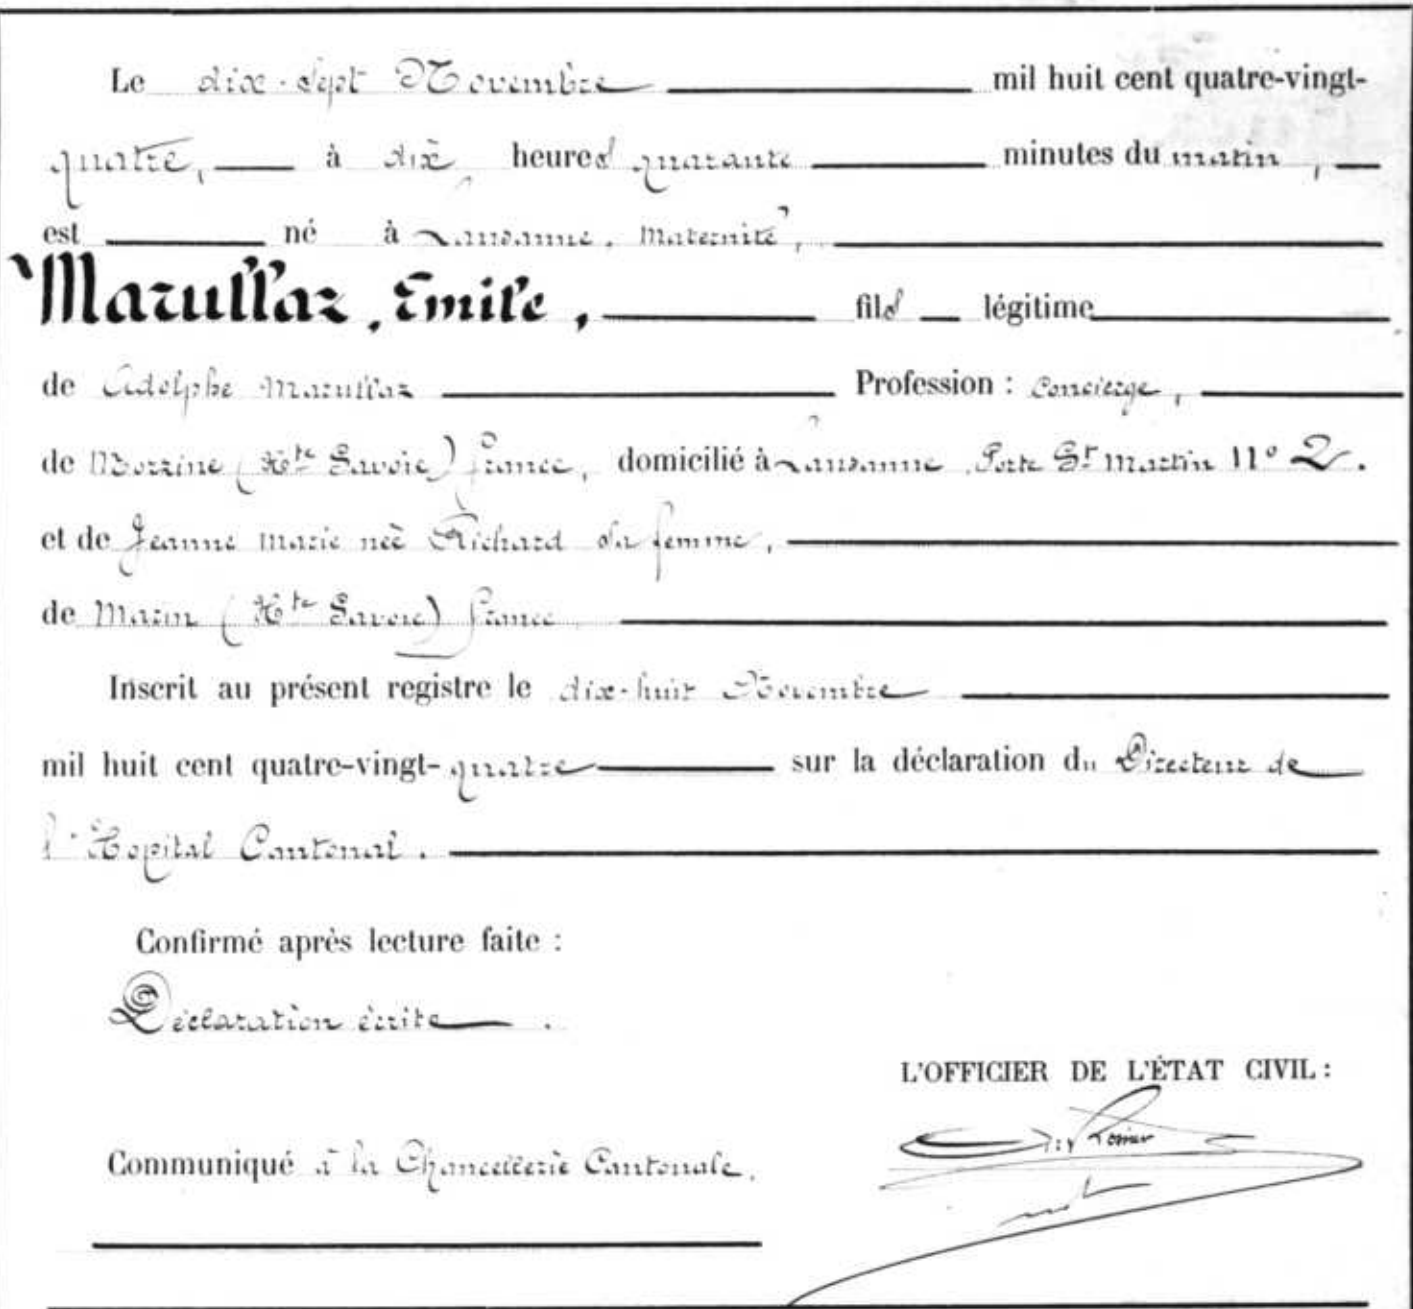 Le dix-sept Novembre mil huit cent quatre-vingt-
quatre, à dix heures quarante minutes du matin,
est né à Lausanne, Maternité,
Marullaz, Emile, fils légitime
de Adolphe Marullaz Profession : Concierge,
de Morzine (Hte Savoie) France, domicilié à Lausanne, Porte St Martin No 2.
et de Jeanne Marie neè Richard sa femme,
de Marin (Hte Savoie) France
Inscrit au présent registre le dix-huit Novembre
mil huit cent quatre-vingt-quatre sur la déclaration du Directeur de
l'Hopital Cantonal.
Confirmé après lecture faite :
Déclaration écrite.
L'OFFICIER DE L'ÉTAT CIVIL :
Communiqué à la Chancellerie Cantonale.